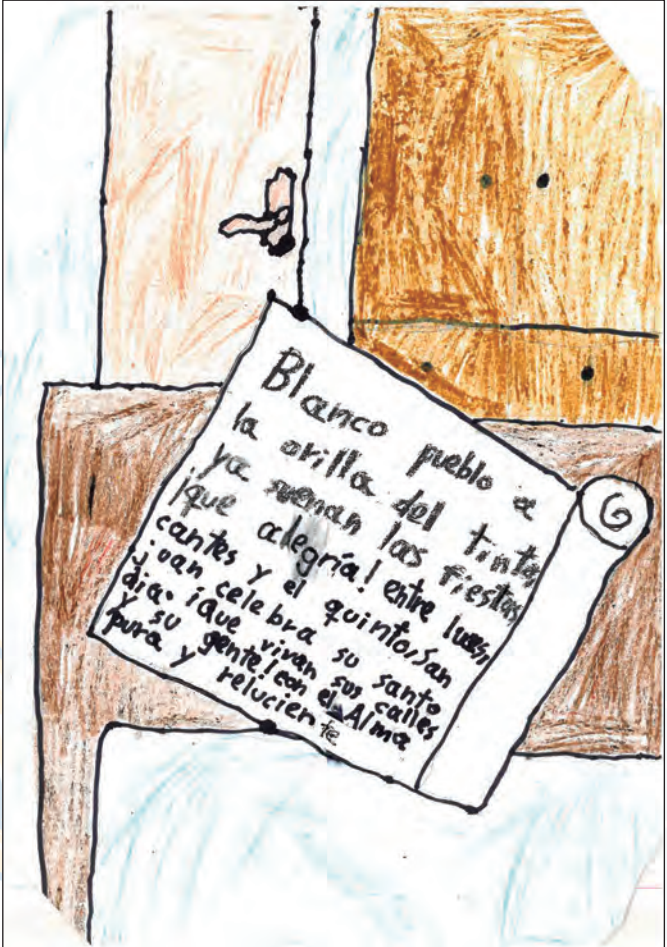 Blanco pueblo a
la orilla del tinto,
ya suenan las fiestas
¡que alegría! entre luces,
cantes y el quinto, San
juan celebra su santo
dia. ¡Que vivan sus calles
y su gente! con el Alma
pura y reluciente